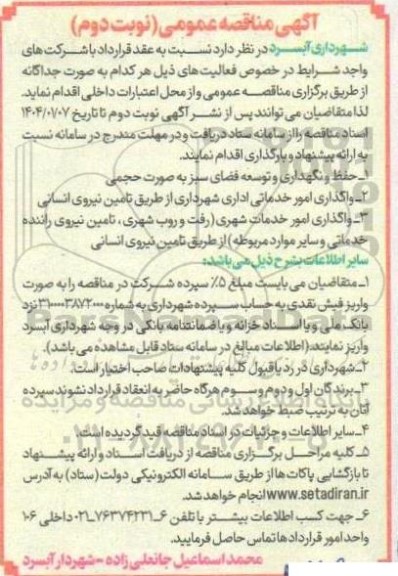 آگهی مناقصه عمومی (نوبت دوم)
شهرداری آبسرد در نظر دارد نسبت به عقد قرارداد با شرکت های
واجد شرایط در خصوص فعالیت های ذیل هر کدام به صورت جداگانه
از طریق برگزاری مناقصه عمومی و از محل اعتبارات داخلی اقدام نماید.
لذا متقاضیان می توانند پس از نشر آگهی نوبت دوم تا تاریخ ۱۴۰۴/۰۱/۰۷
اسناد مناقصه را از سامانه ستاد دریافت و در مهلت مندرج در سامانه نسبت
به ارائه پیشنهاد و بارگذاری اقدام نمایند.
۱ـ حفظ و نگهداری و توسعه فضای سبز به صورت حجمی
۲ـ واگذاری امور خدماتی اداری شهرداری از طریق تامین نیروی انسانی
۳ـ واگذاری امور خدمات شهری (رفت و روب شهری ، تامین نیروی راننده
خدماتی و سایر موارد مربوطه) از طریق تامین نیروی انسانی
سایر اطلاعات بشرح ذیل می باشد:
۱ـ متقاضیان می بایست مبلغ ۵٪ سپرده شرکت در مناقصه را به صورت
واریز فیش نقدی به حساب سپرده شهرداری به شماره نزد
بانک ملی و یا اسناد خزانه و یا ضمانتنامه بانکی در وجه شهرداری آبسرد
واریز نمایند. (اطلاعات مبالغ در سامانه ستاد قابل مشاهده می باشد).
۲ـ شهرداری در رد یا قبول کلیه پیشنهادات صاحب اختیار است.
۳ـ برندگان اول و دوم و سوم هرگاه حاضر به انعقاد قرارداد نشوند سپرده
آنان به ترتیب ضبط خواهد شد.
۴ـ سایر اطلاعات و جزئیات در اسناد مناقصه قید گردیده است.
۵ـ کلیه مراحل برگزاری مناقصه از دریافت اسناد و ارائه پیشنهاد
تا بازگشایی پاکات ها از طریق سامانه الکترونیکی دولت (ستاد) به آدرس
www.setadiran.ir انجام خواهد شد.
۶ـ جهت کسب اطلاعات بیشتر با تلفن ۶ـ۷۶۳۷۴۲۳۱ـ۰۲۱ داخلی ۱۰۶
واحد امور قراردادها تماس حاصل فرمایید.
محمد اسماعیل جانعلی زاده - شهردار آبسرد